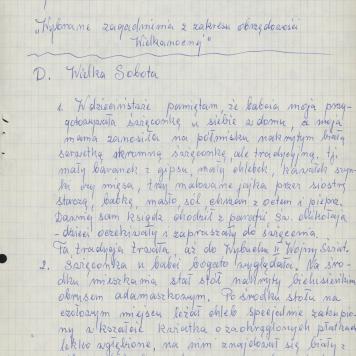 "Wybrane zagadnienia z zakresu obrzędowości
Wielkanocnej"
D. Wielka Sobota
1. W dzieciństwie pamiętam, że babcia moja przy-
gotowywała święconkę u siebie w domu, a moja
mama zanosiła na półmisku nakrytym białą
serwetką skromną święconkę ale tradycyjną, tj.
mały baranek z gipsu, mały chlebek, kawałek szyn-
ki czy mięsa, trzy malowane jajka przez siostrę
starszą, babkę, masło, sól, chrzan z octem i pieprz.
Dawniej sam ksiądz chodził z parafii św. Mikołaja
- dzieci oczekiwały i zapraszały do święcenia.
Ta tradycja trwała, aż do Wybuchu II Wojny Świat.
2. Święconka u babci bogato wyglądała. Na śro-
dku mieszkania stał stół nakryty bielusieńkim
obrusem adamaszkowym. Po środku stołu na
czołowym miejscu leżał chleb specjalnie zakupio-
ny w kształcie o zaokrąglonych płatkach
lekko wgłębione, na nim znajdował się biały z